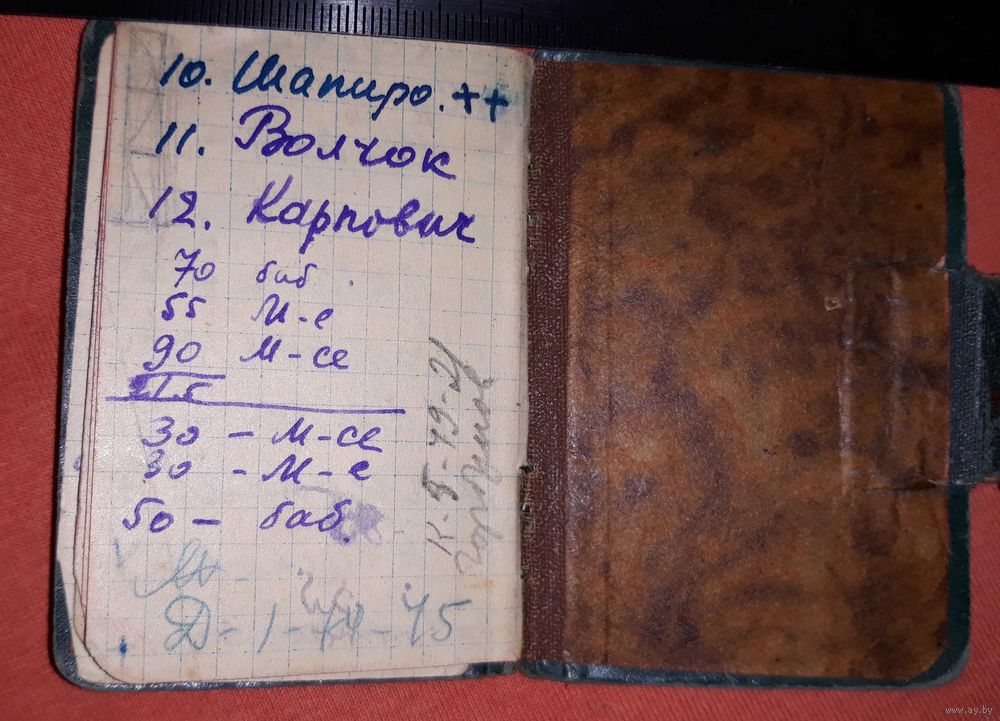 10. Шапиро. ++
11. Волчок
12. Карпович
70 баб.
55 М-е
90 М-се
30 - М-се
30 - М-е
50 - баб.
Д-1-74-45
К-5-49-21
www.ay.by